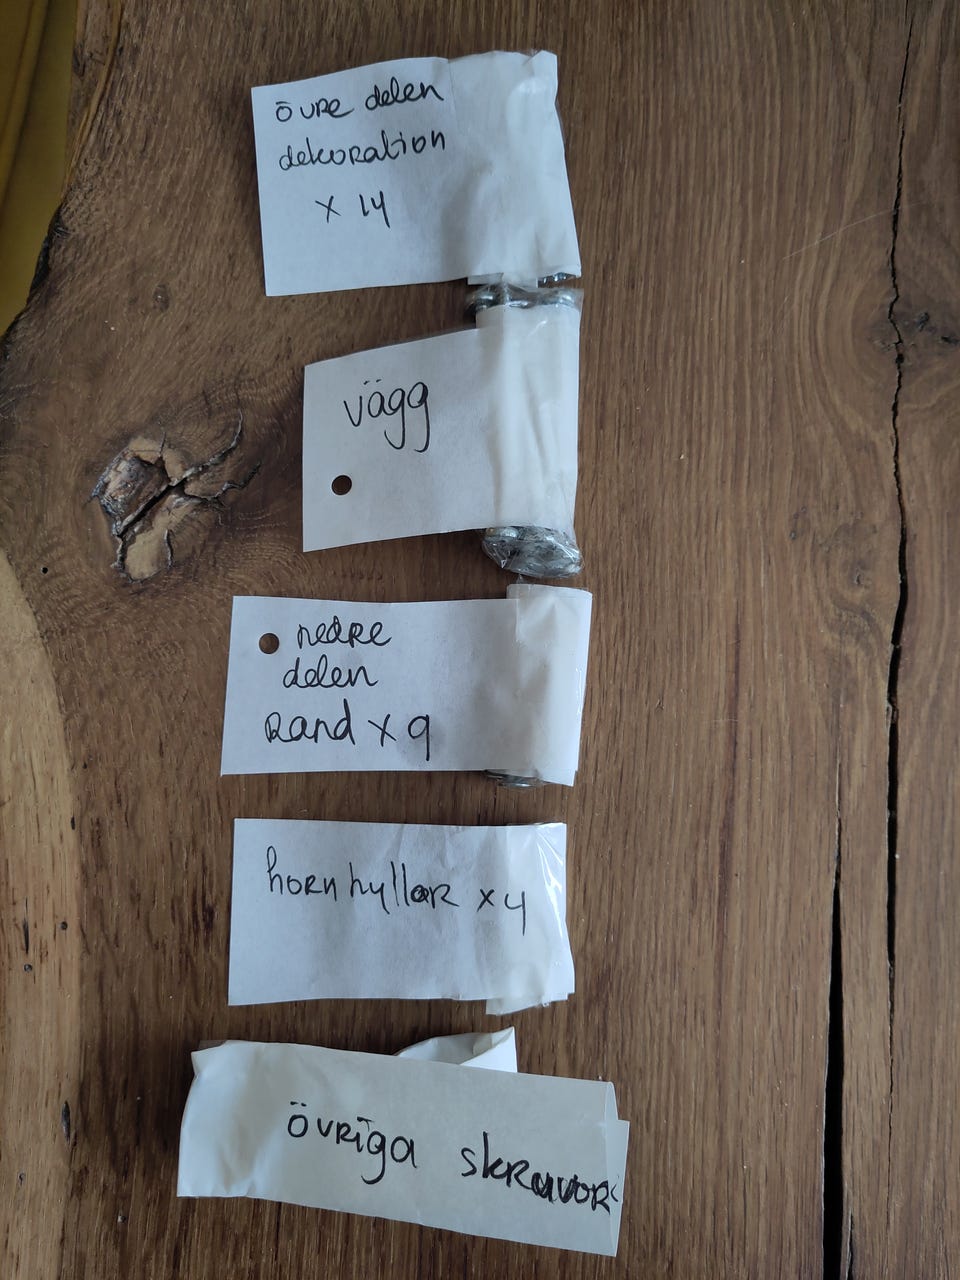 övre delen
dekoration
x 14
vägg
nedre
delen
Rand x 9
hornhyllor x 4
övriga skruvor